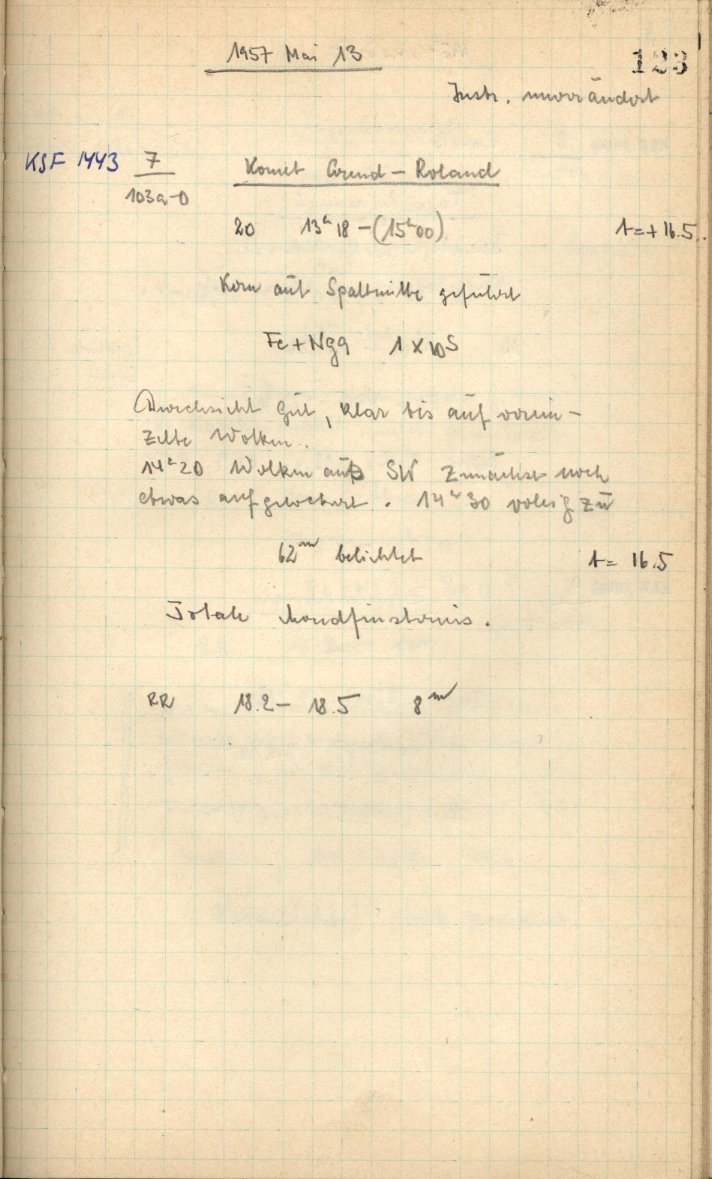 1957 Mai 13
123
Instr. unverändert
KSF 1443 7 Komet Arend – Roland
103a-O
20 13ʰ18 – (15ʰ00) t = + 16.5
Kern auf Spaltmitte geführt
Fe + 1 × 10ˢ
Durchsicht gut, klar bis auf verein-
zelte Wolken.
14ʰ20 Wolken aus SW Zunächst noch
etwas aufgelockert. 14ʰ30 völlig zu
62ᵐ belichtet t = 16.5
Totale Mondfinsternis.
RR 18.2 – 18.5 8ᵐ